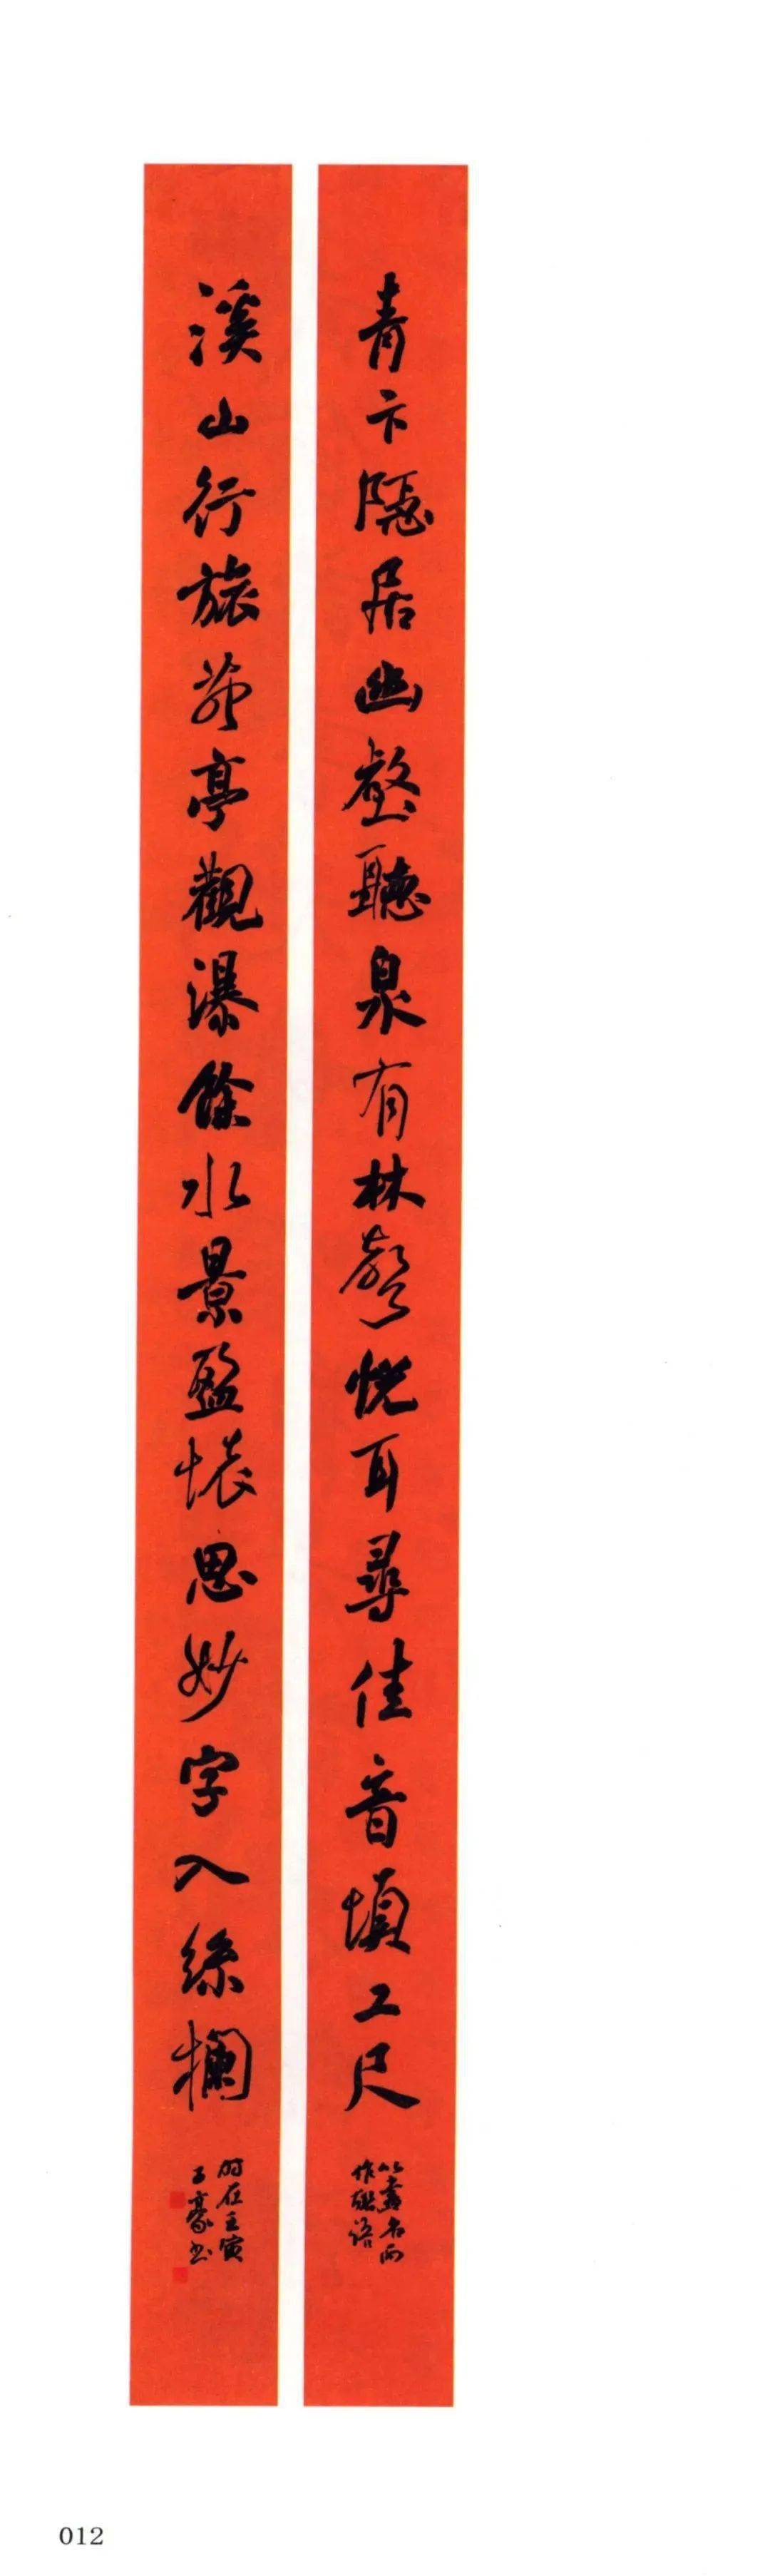 青卞隱居幽壑聽泉有林聲悦耳尋佳音填工尺
以畫名而
作聯語
溪山行旅茆亭觀瀑餘水景盈懷思妙字入絲欄
時在壬寅
子豪書
012